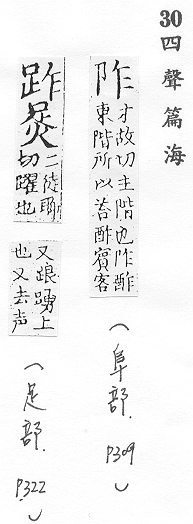 30四聲篇海
阼才故切主階也阼酢
東階所以荅酢賓客
（阜部. P309）
𨀥 二徒聊
切躍也
又踉踴上
也又去声
（足部. P.322）